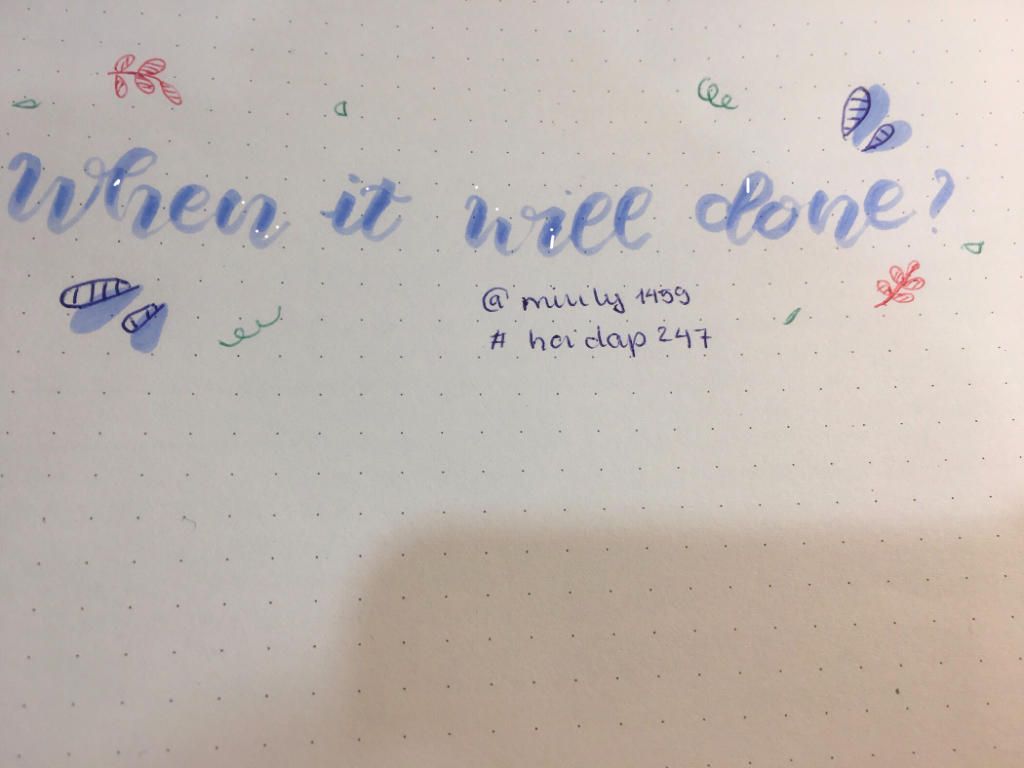 When it will done?
@miuly1499
# hoidap 247